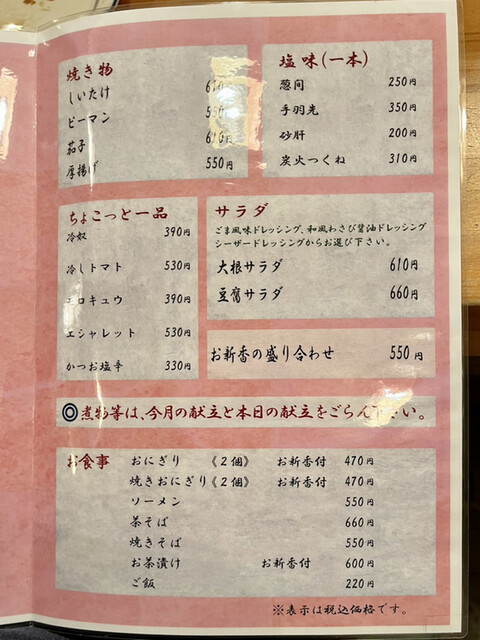 焼き物
しいたけ
ピーマン
茄子
厚揚げ 550円
塩味(一本)
葱間 250円
手羽先 350円
砂肝 200円
炭火つくね 310円
ちょこっと一品
冷奴 390円
冷しトマト 530円
モロキュウ 390円
エシャレット 530円
かつお塩辛 330円
サラダ
ごま風味ドレッシング、和風わさび醤油ドレッシング
シーザードレッシングからお選び下さい。
大根サラダ 610円
豆腐サラダ 660円
お新香の盛り合わせ 550円
◎煮物等は、今月の献立と本日の献立をごらん下さい。
お食事
おにぎり 《2個》 お新香付 470円
焼きおにぎり《2個》 お新香付 470円
ソーメン 550円
茶そば 660円
焼きそば 550円
お茶漬け お新香付 600円
ご飯 220円
※表示は税込価格です。